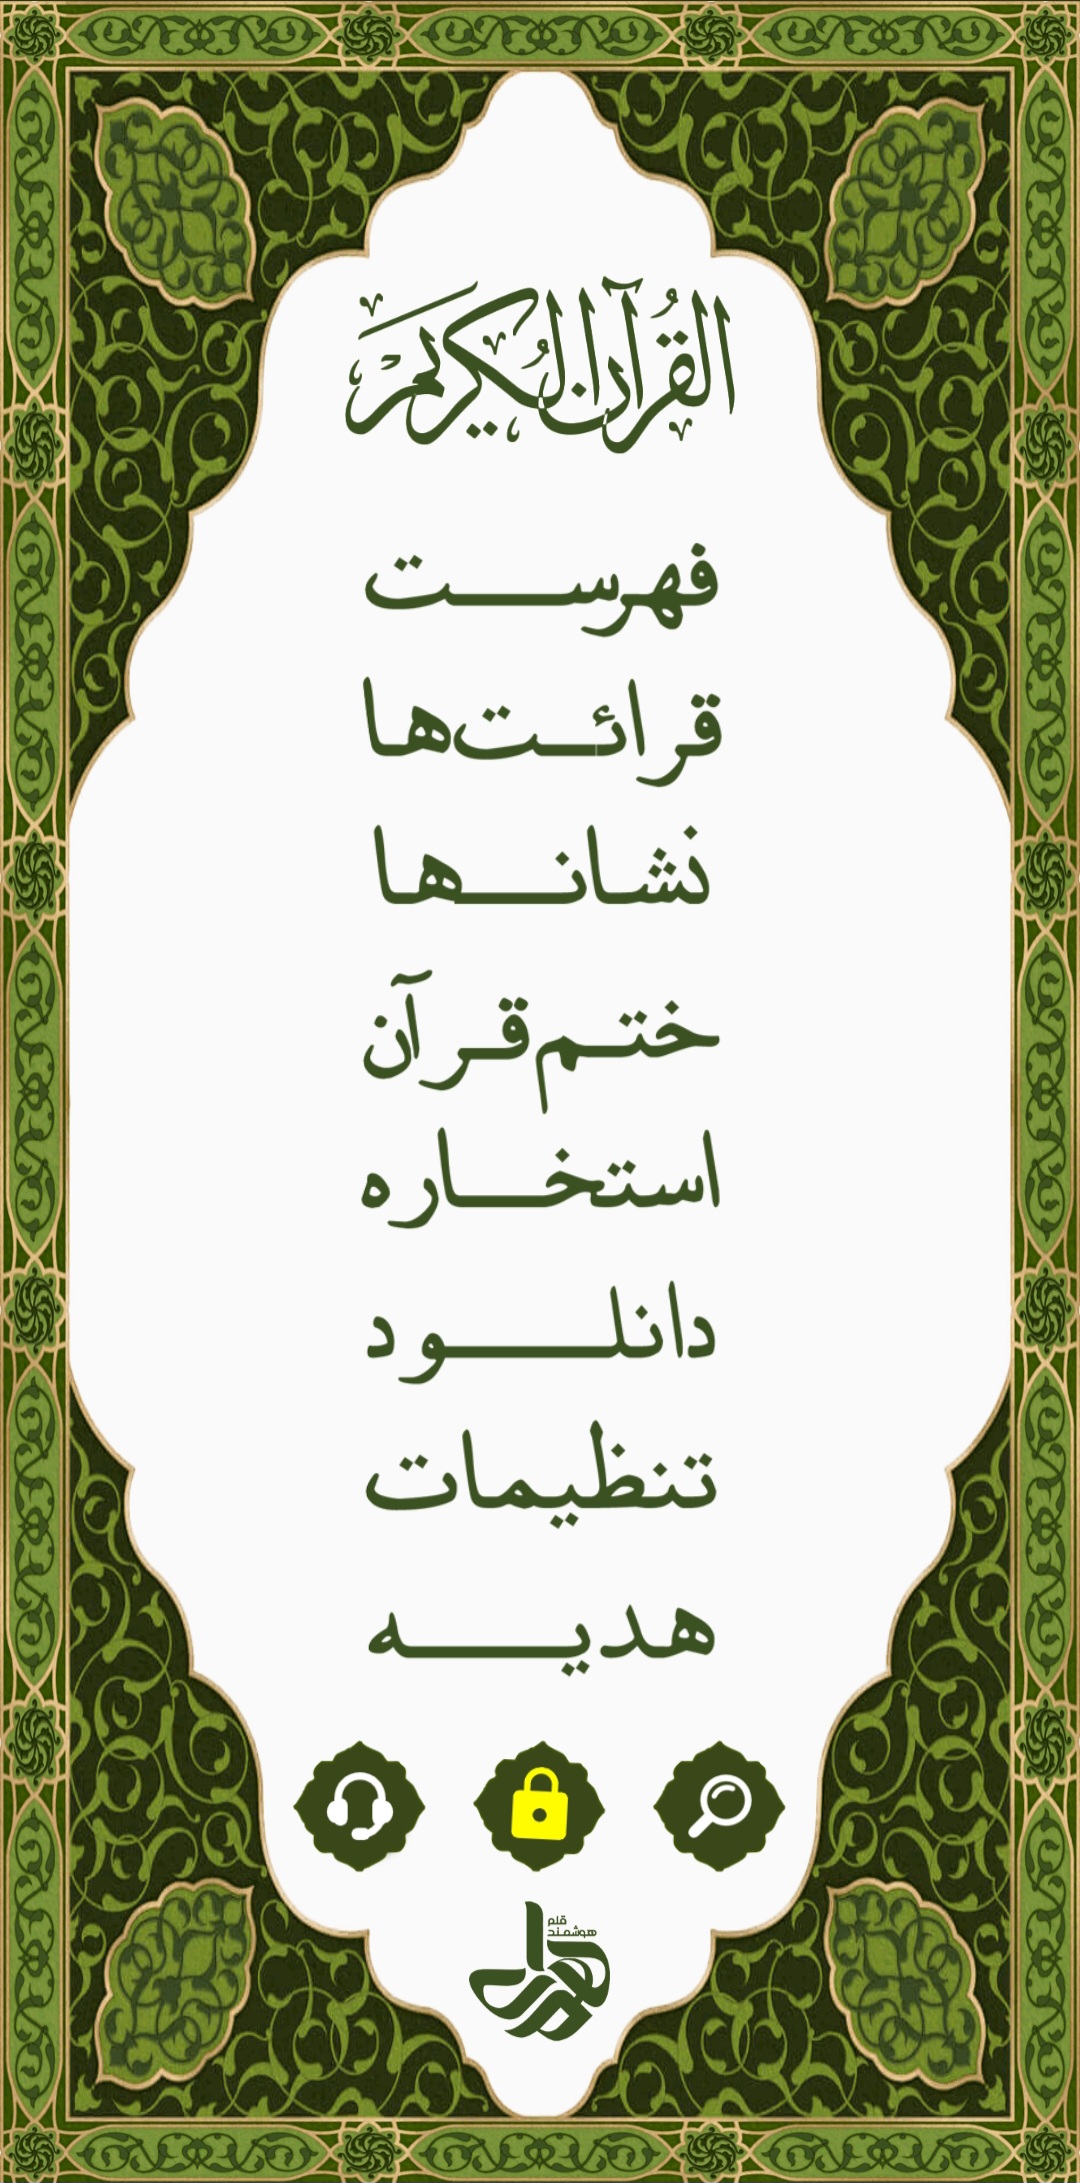 القرآن الكريم
فهرست
قرائت‌ها
نشانها
ختم قرآن
استخاره
دانلود
تنظیمات
هدیه
قلم
هوشمند